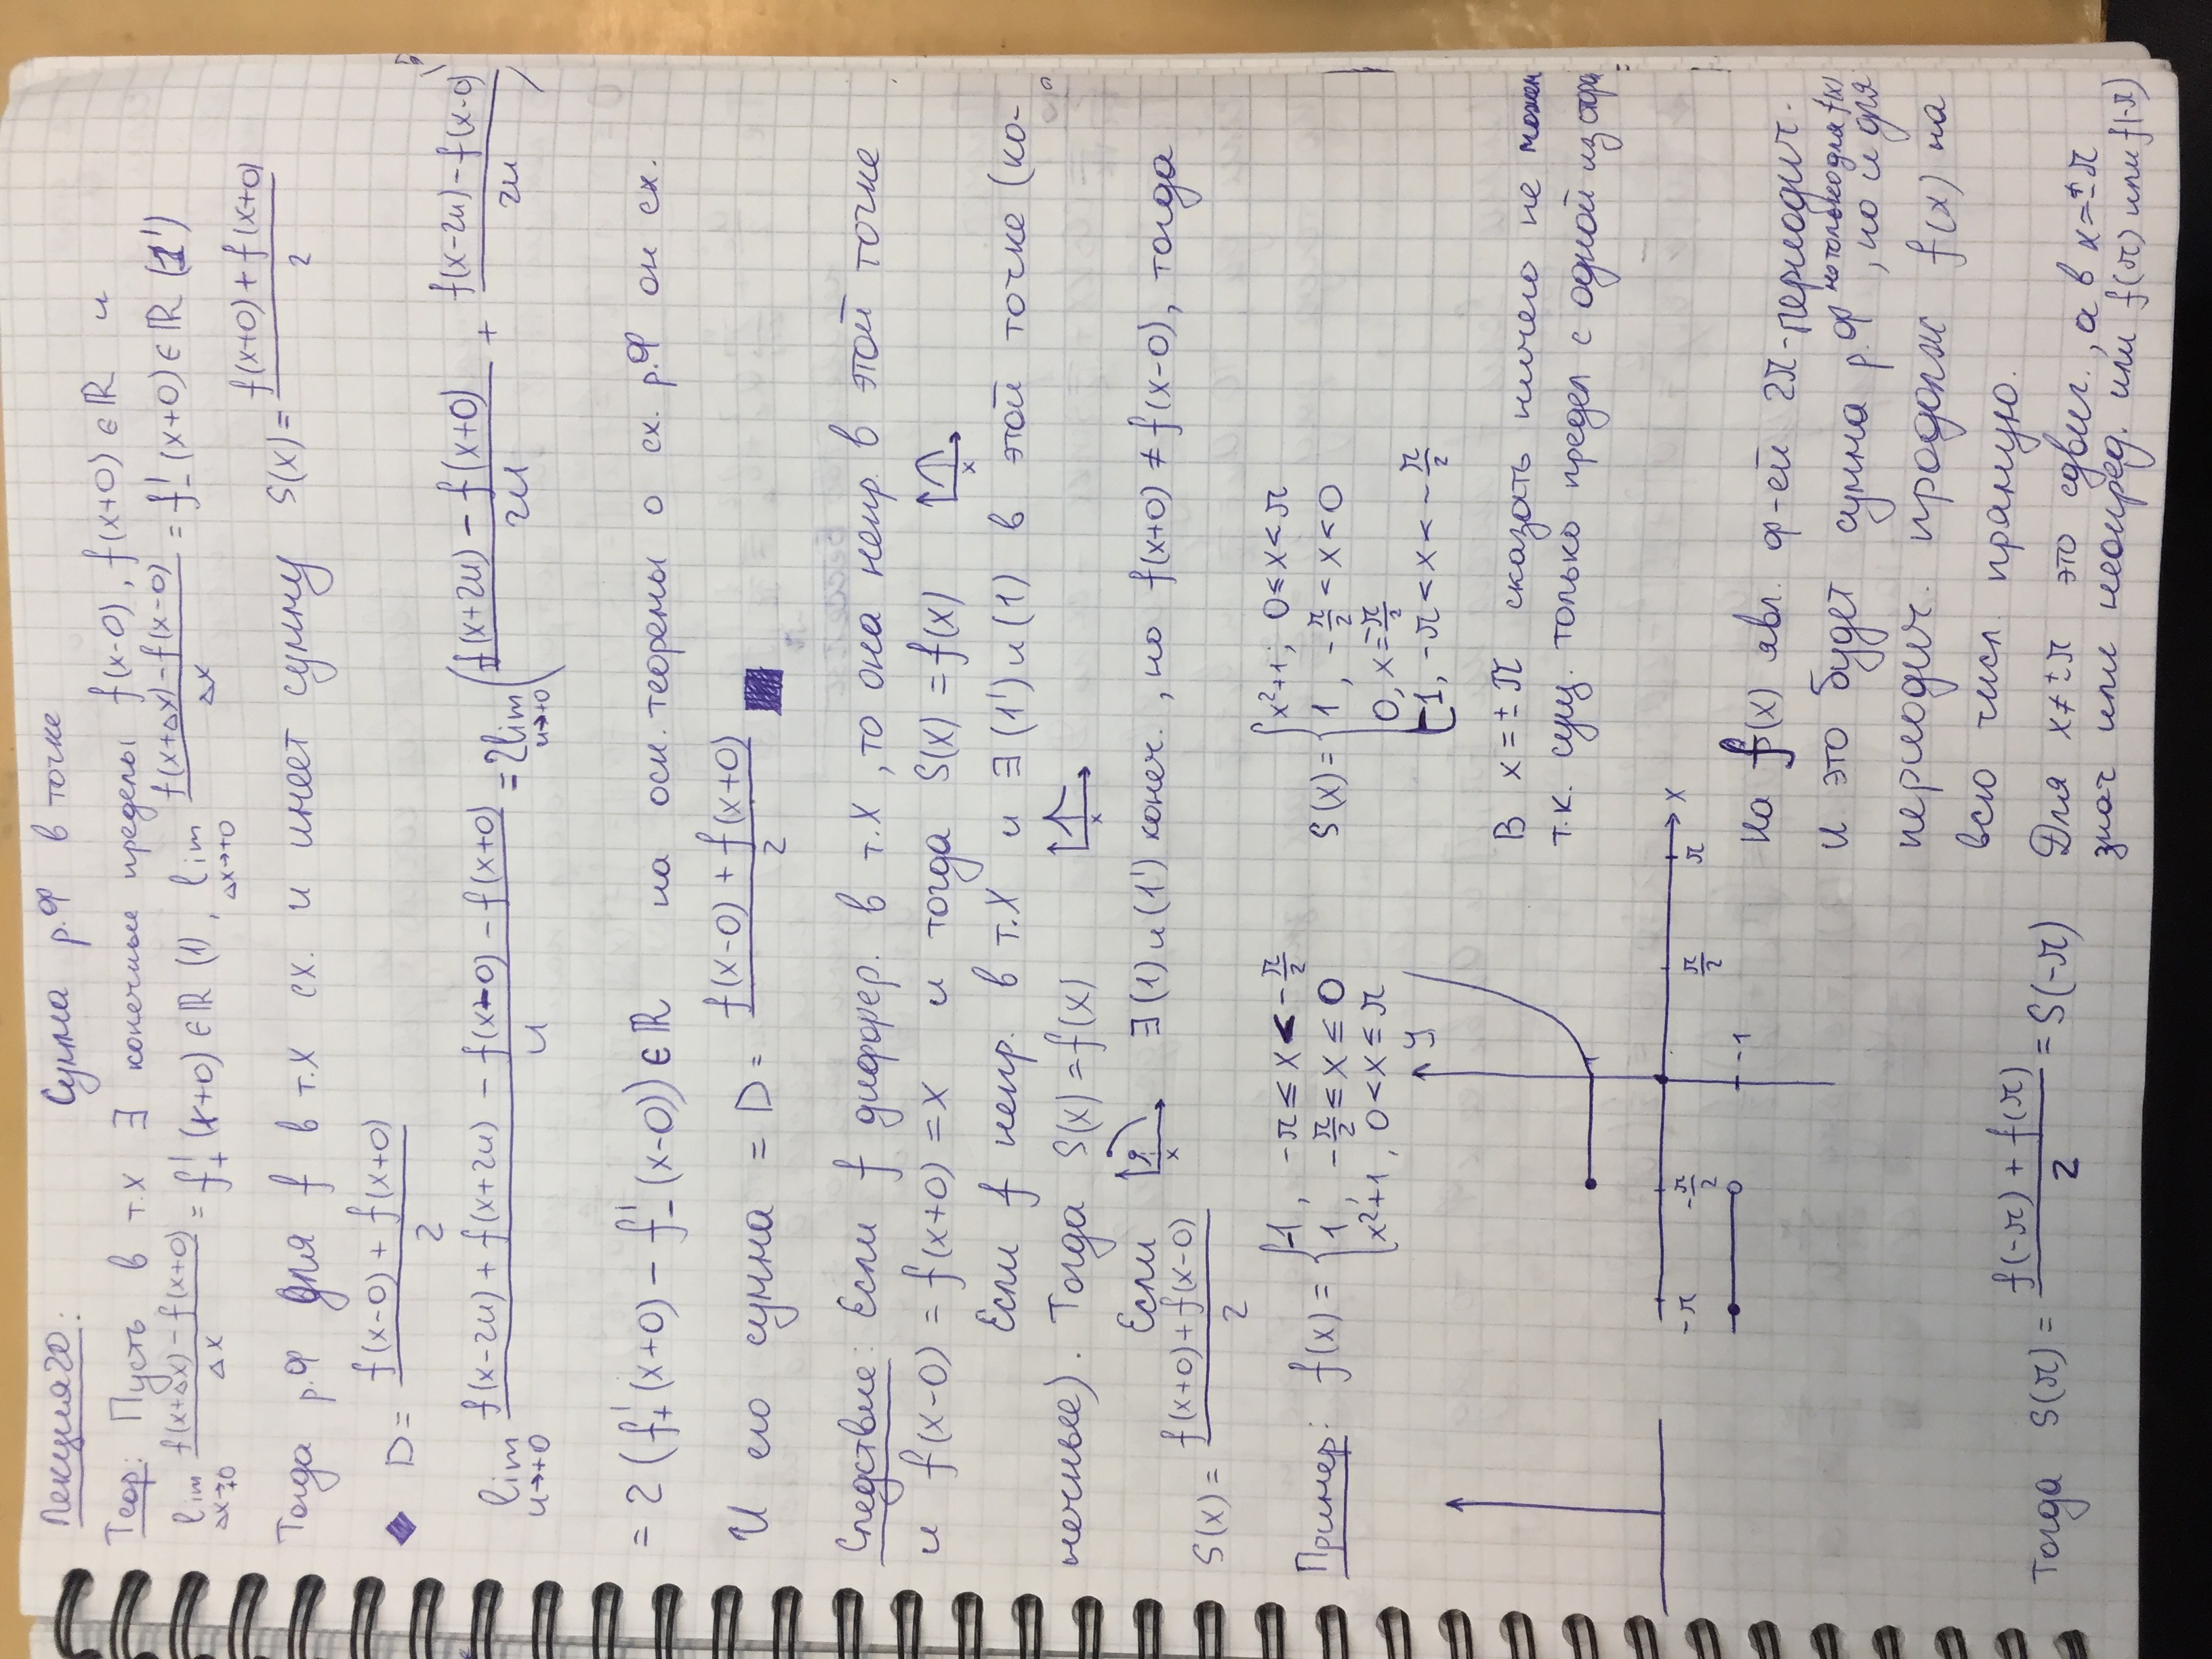 Лекция 20: Сумма р.Ф в точке
Теор: Пусть в т.х ∃ конечные пределы f(x-0), f(x+0) ∈ ℝ и
lim Δx→+0 (f(x+Δx) - f(x+0))/Δx = f'₊(x+0) ∈ ℝ (1), lim Δx→+0 (f(x+Δx) - f(x-0))/Δx = f'₋(x+0) ∈ ℝ (1')
Тогда р.Ф для f в т.х сх. и имеет сумму S(x) = (f(x+0) + f(x+0))/2
◆ D = (f(x-0) + f(x+0))/2
lim u→+0 (f(x-2u) + f(x+2u) - f(x-0) - f(x+0))/u = 2 lim u→+0 ((f(x+2u) - f(x+0))/2u + (f(x-2u) - f(x-0))/2u)
= 2 (f'₊(x+0) - f'₋(x-0)) ∈ ℝ на осн. теоремы о сх. р.Ф он сх.
И его сумма = D = (f(x-0) + f(x+0))/2 ■
Следствие: Если f диффер. в т.х, то она непр. в этой точке
и f(x-0) = f(x+0) = x и тогда S(x) = f(x) x
Если f непр. в т.х и ∃ (1') и (1) в этой точке (ко-
нечные). Тогда S(x) = f(x) x
Если x ∃ (1) и (1') конеч., но f(x+0) ≠ f(x-0), тогда
S(x) = (f(x+0) + f(x-0))/2
Пример: f(x) = { -1, -π ≤ x < -π/2
1, -π/2 ≤ x ≤ 0
x²+1, 0 < x ≤ π
S(x) = { x²+1; 0 ≤ x < π
1, -π/2 < x < 0
0, x = -π/2
-1, -π < x < -π/2
y
1
-π -π/2 π/2 π x
-1
В x = ±π сказать ничего не можем
т.к. сущ. только предел с одной из сторо
На f(x) явл. ф-ей 2π-периодич.
и это будет сумма р.Ф не только для f(x), но и для
периодич. продолж f(x) на
всю числ. прямую.
Тогда S(π) = (f(-π) + f(π))/2 = S(-π)
Для x ≠ ±π это сдвиг., а в x = ±π
знач или неопред. или f(π) или f(-π)